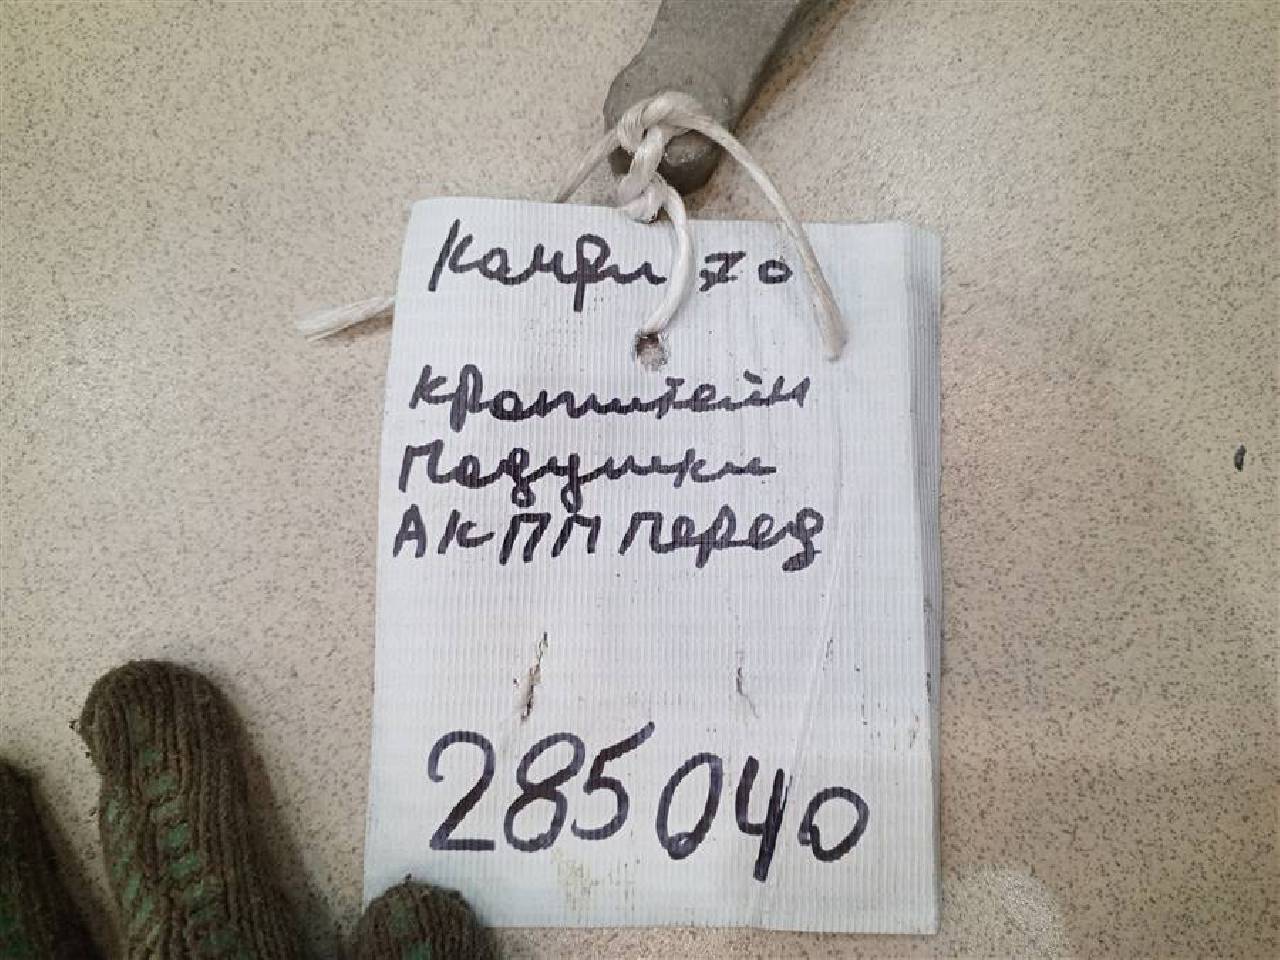 Камри 70
кронштейн
подушки
АКПП перед
285040